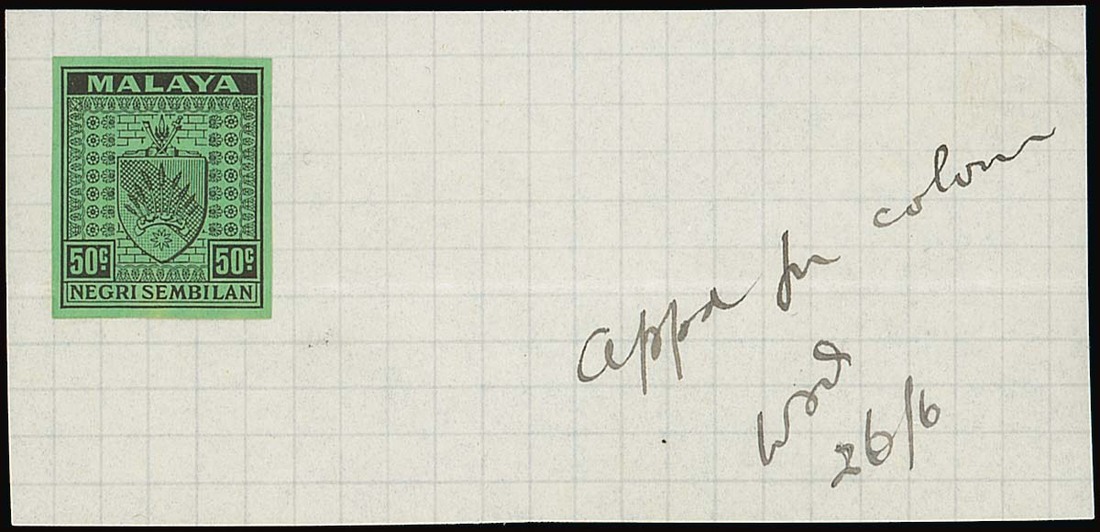 MALAYA
50c 50c
NEGRI SEMBILAN
Appd for colour
26/6